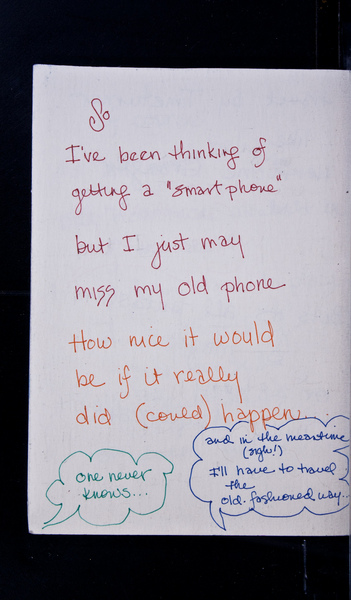 So
I've been thinking of
getting a "smart phone"
but I just may
miss my old phone
How nice it would
be if it really
did (could) happen
one never
knows...
and in the meantime
(sigh!)
I'll have to travel
the
old-fashioned way...